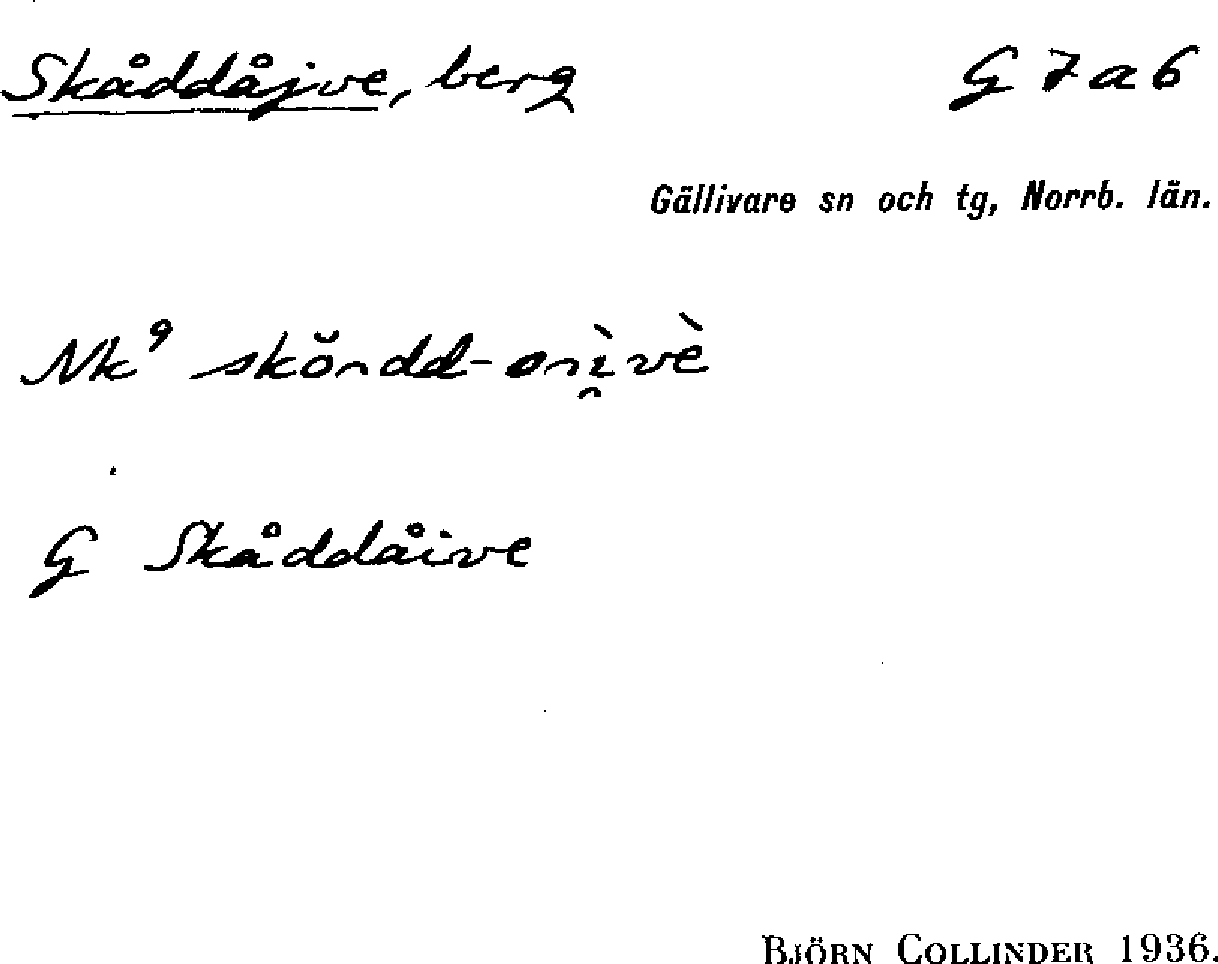 Skåddåjve, berg G 7 a 6
Gällivare sn och tg, Norrb. län.
Nk⁹
G Skåddåive
BJÖRN COLLINDER 1936.